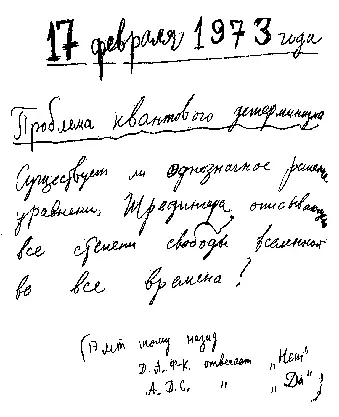 17 февраля 1973 года
Проблема квантового детерминизма
Существует ли однозначное решение
уравнения Шредингера, описывающее
все степени свободы вселенной
во все времена?
(17 лет тому назад
Д.А.Ф-К. отвечает „Нет"
А.Д.С. „ „Да")